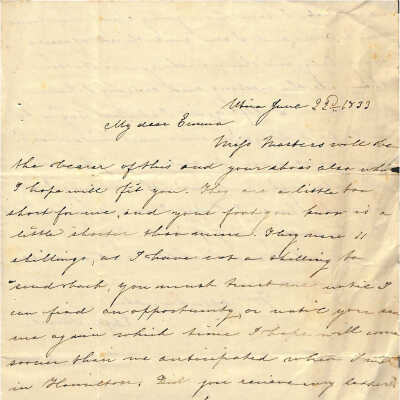 Utica June 22d, 1833
My dear Emma
Miss Mathers will be
the bearer of this and your shoes also which
I hope will fit you. They are a little too
short for me, and your foot you know is a
little shorter than mine. They were 11
shillings, as I have not a shilling to
send back, you must trust me until I
can find an opportunity, or until you see
me again which time I hope will come
sooner than we anticipated when I was
in Hamilton. Did you receive my letter